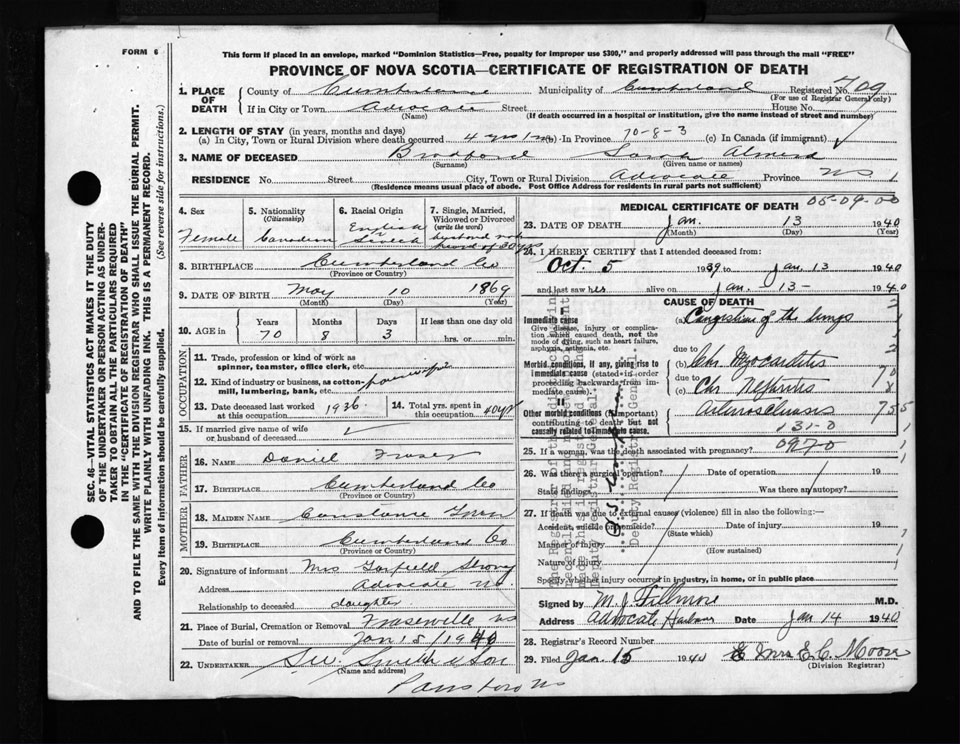 FORM 6
This form if placed in an envelope, marked "Dominion Statistics—Free, penalty for improper use $300," and properly addressed will pass through the mail "FREE"
PROVINCE OF NOVA SCOTIA—CERTIFICATE OF REGISTRATION OF DEATH
1. PLACE OF DEATH
County of Cumberland Municipality of Cumberland Registered No. 709
(For use of Registrar General only)
If in City or Town Advocate Street House No.
(Name) (If death occurred in a hospital or institution, give the name instead of street and number)
2. LENGTH OF STAY (in years, months and days)
(a) In City, Town or Rural Division where death occurred 4 yrs 1 m (b) In Province 70-8-3 (c) In Canada (if immigrant)
3. NAME OF DECEASED Bradford Sarah Almeda
(Surname) (Given name or names)
RESIDENCE No. Street City, Town or Rural Division Advocate Province NS
(Residence means usual place of abode. Post Office Address for residents in rural parts not sufficient)
4. Sex
Female
5. Nationality
(Citizenship)
Canadian
6. Racial Origin
English
7. Single, Married, Widowed or Divorced
(write the word)
husband not heard of 30 yrs
8. BIRTHPLACE Cumberland Co
(Province or Country)
9. DATE OF BIRTH May 10 1869
(Month) (Day) (Year)
10. AGE in
Years Months Days If less than one day old
70 8 3 hrs. or min.
OCCUPATION
11. Trade, profession or kind of work as spinner, teamster, office clerk, etc.
12. Kind of industry or business, as cotton-mill, lumbering, bank, etc. housewife
13. Date deceased last worked at this occupation 1936
14. Total yrs. spent in this occupation 40 yrs
15. If married give name of wife or husband of deceased
FATHER
16. NAME Daniel Fraser
17. BIRTHPLACE Cumberland Co
(Province or Country)
MOTHER
18. MAIDEN NAME Constance
19. BIRTHPLACE Cumberland Co
(Province or Country)
20. Signature of informant Mrs Garfield
Address Advocate NS.
Relationship to deceased daughter
21. Place of Burial, Cremation or Removal Fraserville NS
Date of burial or removal Jan 15/1940
22. UNDERTAKER Smith & Son
(Name and address)
Parrsboro NS
MEDICAL CERTIFICATE OF DEATH
05-09-00
23. DATE OF DEATH Jan. 13 1940
(Month) (Day) (Year)
24. I HEREBY CERTIFY that I attended deceased from:
Oct. 5 1939 to Jan. 13 1940
and last saw her alive on Jan. 13 - 1940
CAUSE OF DEATH
Immediate cause
Give disease, injury or complication which caused death, not the mode of dying, such as heart failure, asphyxia, asthenia, etc.
(a) Congestion of the lungs
due to
Morbid conditions, if any, giving rise to immediate cause (stated in order proceeding backwards from immediate cause).
Chr. Myocarditis
due to
(c) Chr. Nephritis
Other morbid conditions (if important) contributing to death but not causally related to immediate cause.
Arteriosclerosis
131-0
25. If a woman, was the death associated with pregnancy? 097-0
26. Was there a surgical operation? Date of operation 19
State findings Was there an autopsy?
27. If death was due to external causes (violence) fill in also the following:—
Accident, suicide or homicide? Date of injury 19
(State which)
Manner of injury
(How sustained)
Nature of injury
Specify whether injury occurred in industry, in home, or in public place
Signed by M. J. Fillmore M.D.
Address Advocate Harbour Date Jan 14 1940
28. Registrar's Record Number
29. Filed Jan. 15 1940 Mrs E. C. Moore
(Division Registrar)
Deputy Registrar General.
SEC. 46—VITAL STATISTICS ACT MAKES IT THE DUTY OF THE UNDERTAKER OR PERSON ACTING AS UNDERTAKER TO OBTAIN ALL THE PARTICULARS REQUIRED IN THE "CERTIFICATE OF REGISTRATION OF DEATH"
AND TO FILE THE SAME WITH THE DIVISION REGISTRAR WHO SHALL ISSUE THE BURIAL PERMIT.
WRITE PLAINLY WITH UNFADING INK. THIS IS A PERMANENT RECORD.
Every item of information should be carefully supplied. (See reverse side for instructions.)